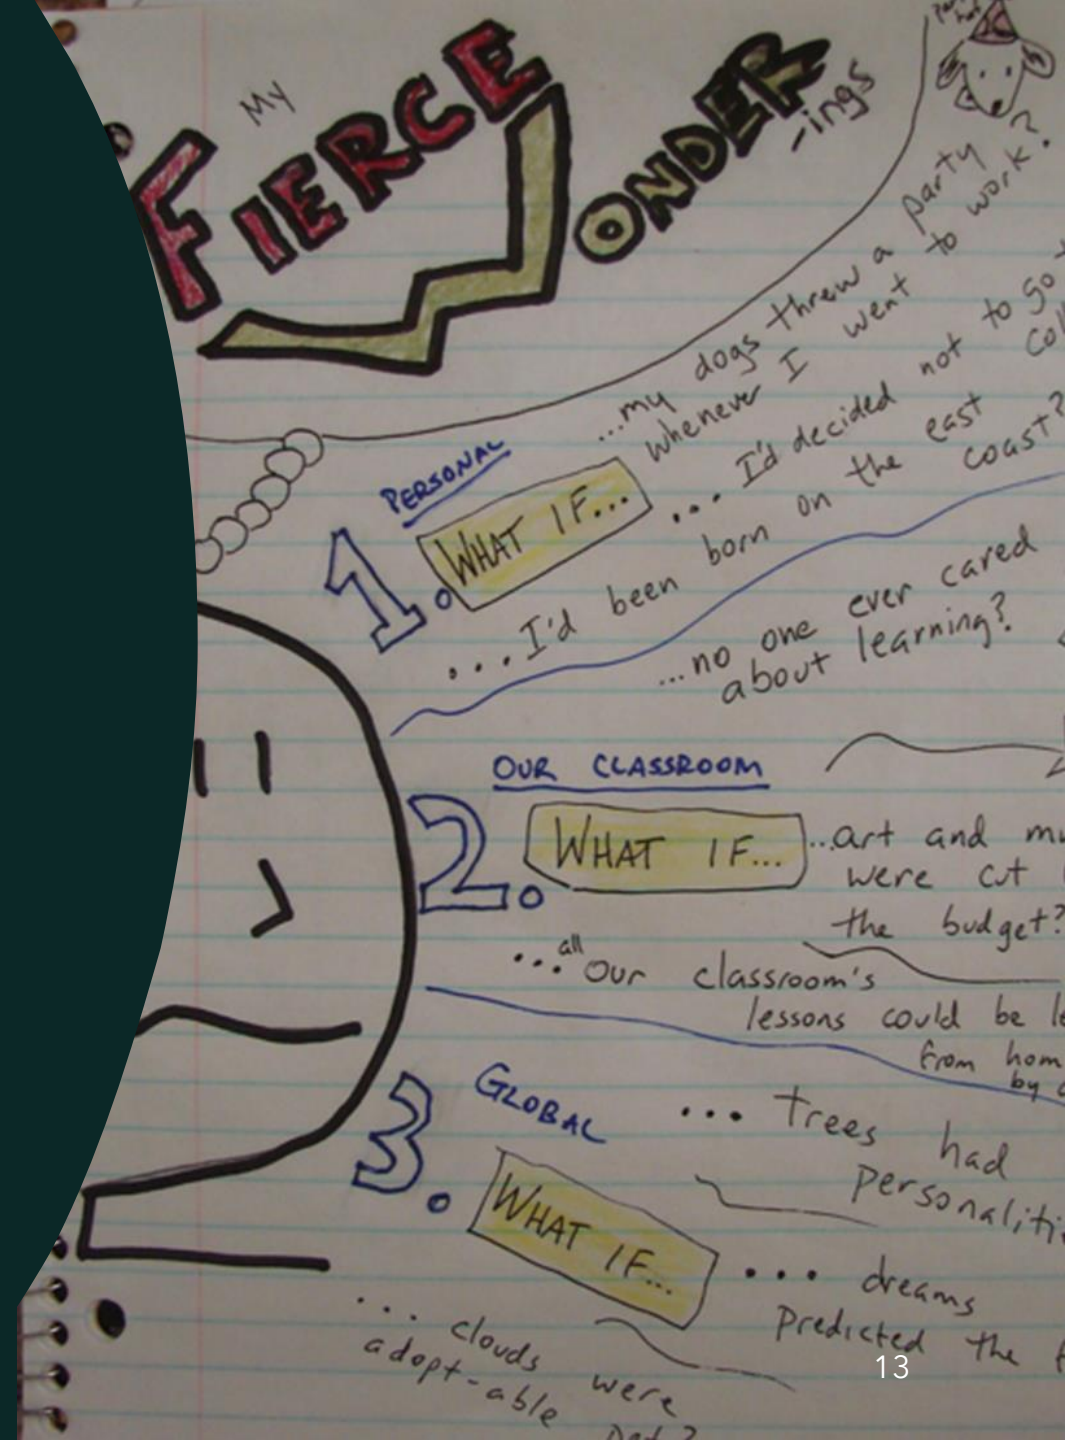 My
FIERCE
WONDER
-ings
PERSONAL
1. WHAT IF...
...my dogs threw a party
whenever I went to work?
... I'd decided not to go
... I'd been born on the east coast?
...no one ever cared
about learning?
OUR CLASSROOM
2. WHAT IF...
...art and
were cut
the budget?
...all our classroom's
lessons could be
from
by
GLOBAL
3. WHAT IF...
... trees had
... dreams
predicted the
... clouds were
adopt-able
13